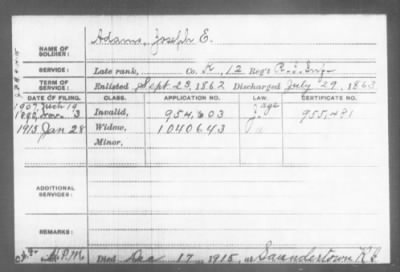 Adams, Joseph E.
NAME OF SOLDIER:
SERVICE: Late rank, Co. K, 12 Reg't R.I. Inf.
TERM OF SERVICE: Enlisted Sept. 23, 1862 Discharged July 29, 1863
DATE OF FILING. CLASS. APPLICATION NO. LAW. CERTIFICATE NO.
1907 Mch 19 age
1890, 3 Invalid, 954,803 955,491
1915 Jan 28 Widow, 1040643
Minor,
ADDITIONAL SERVICES:
REMARKS:
Died Dec 17, 1915, at Saunderstown R I